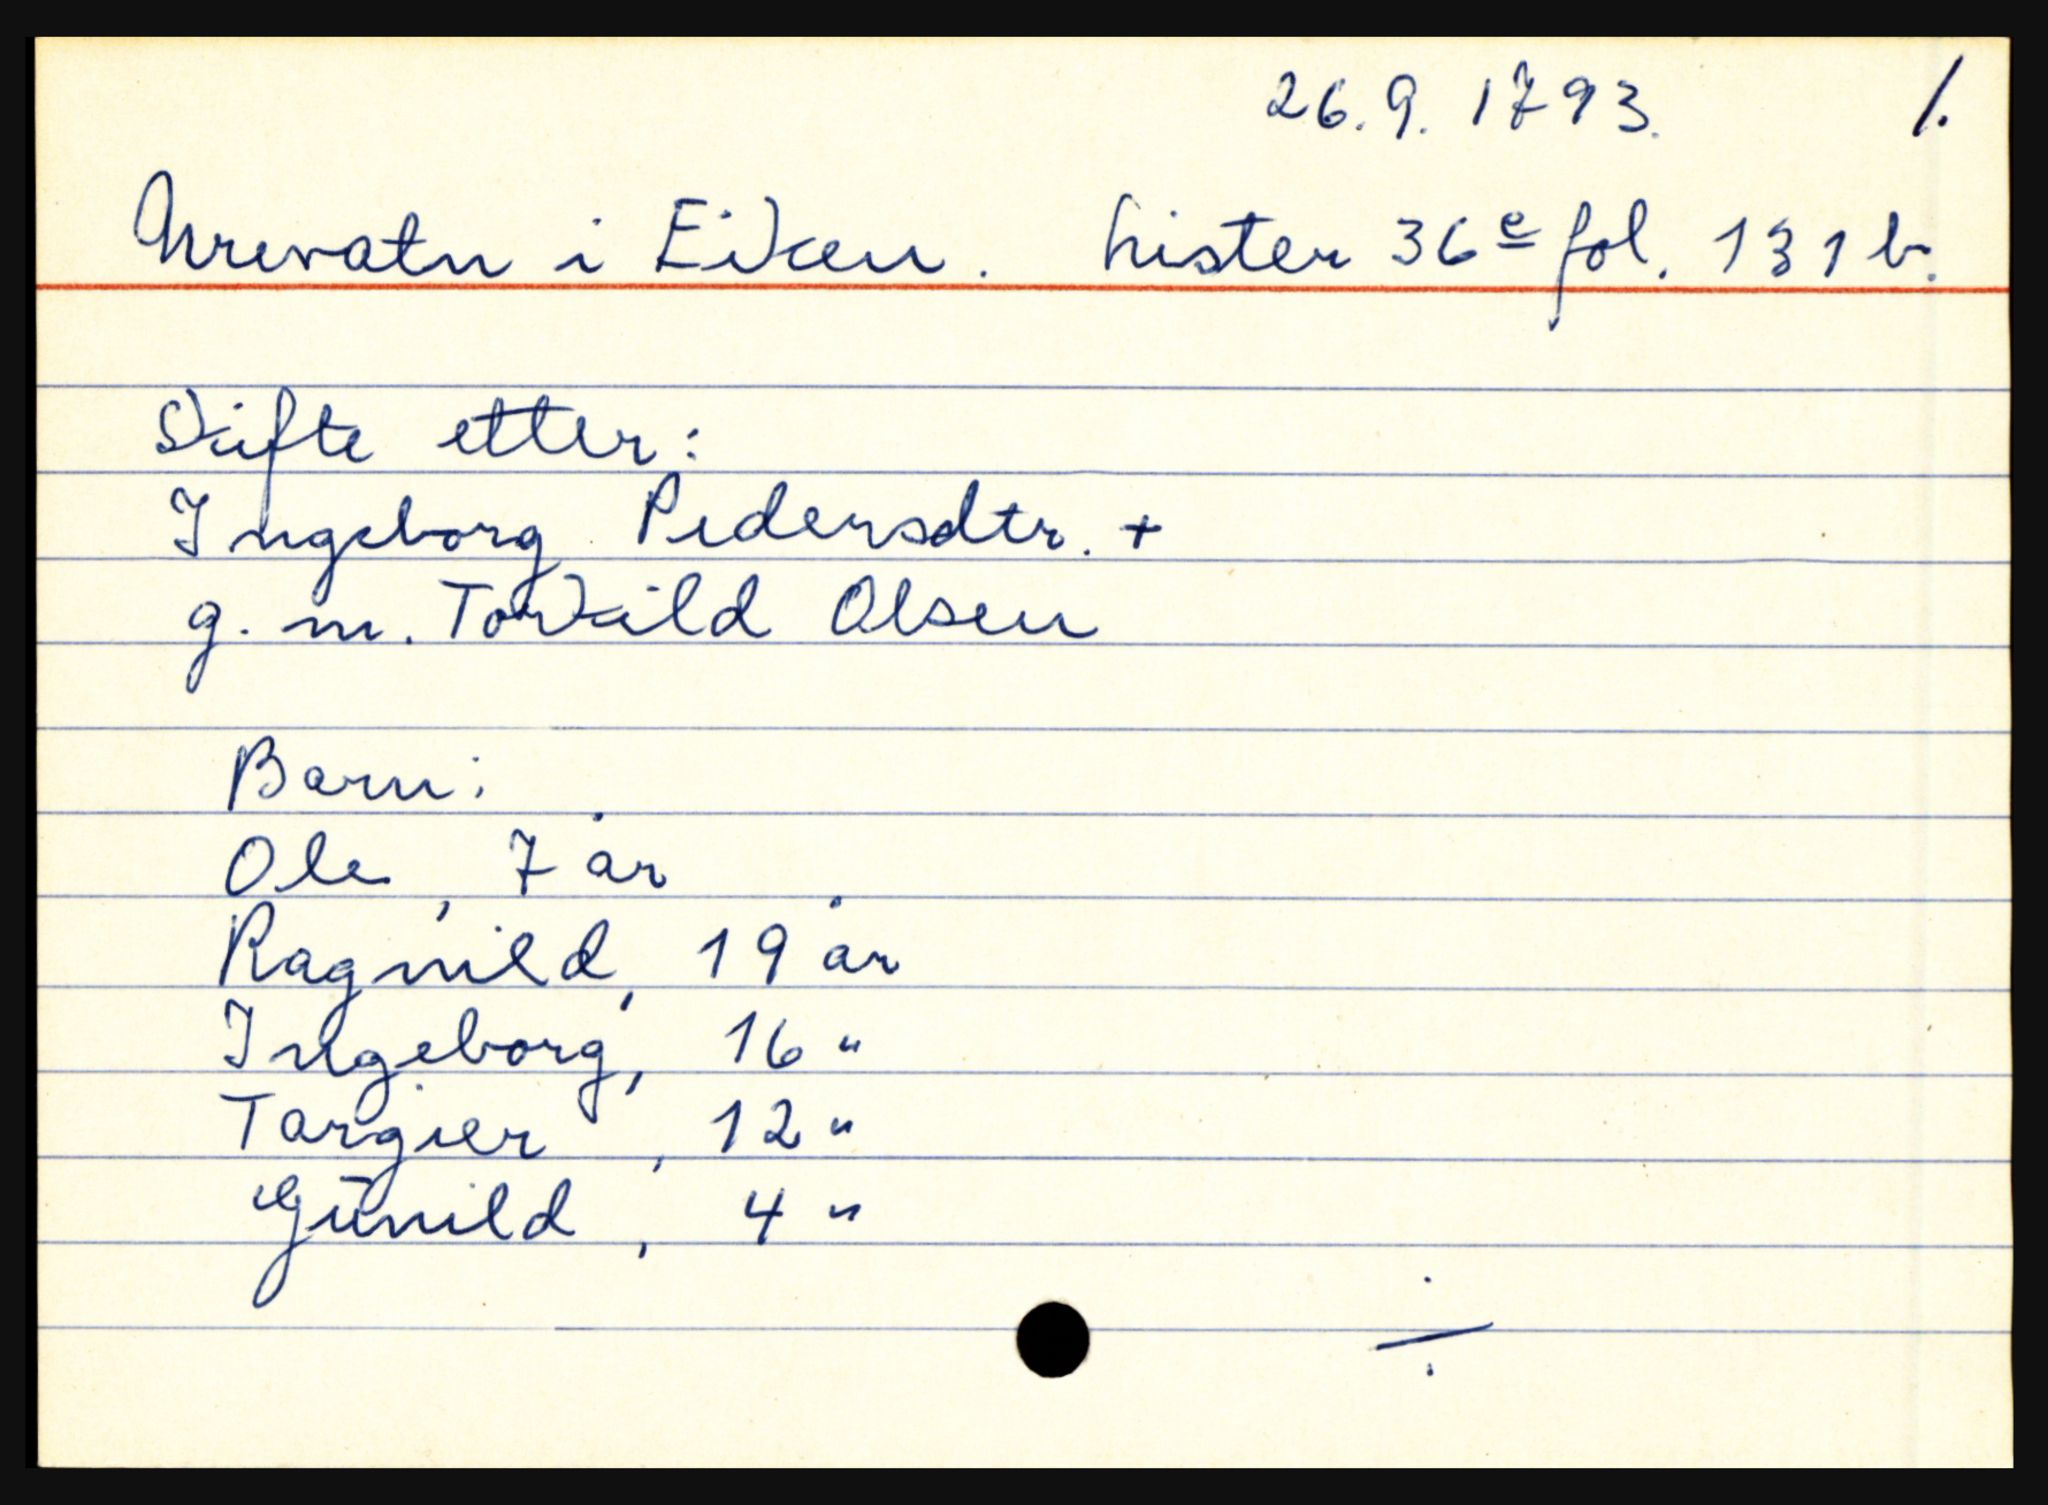 26.9.1793. /.
Urevatn i Eiken. Lister 36e fol. 131 b.
Skifte etter:
Ingeborg Pedersdtr. +
g. m. Torkild Olsen
Barn:
Ole, 7 år
Ragnild, 19 år
Ingeborg, 16 "
Targier, 12 "
Gunild, 4 "
÷